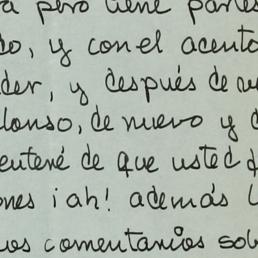 a pero tiene partes
do, y con el acento
der, y después de
lonso, de nuevo y
enteré de que usted
ones ¡ah! además
los comentarios sob